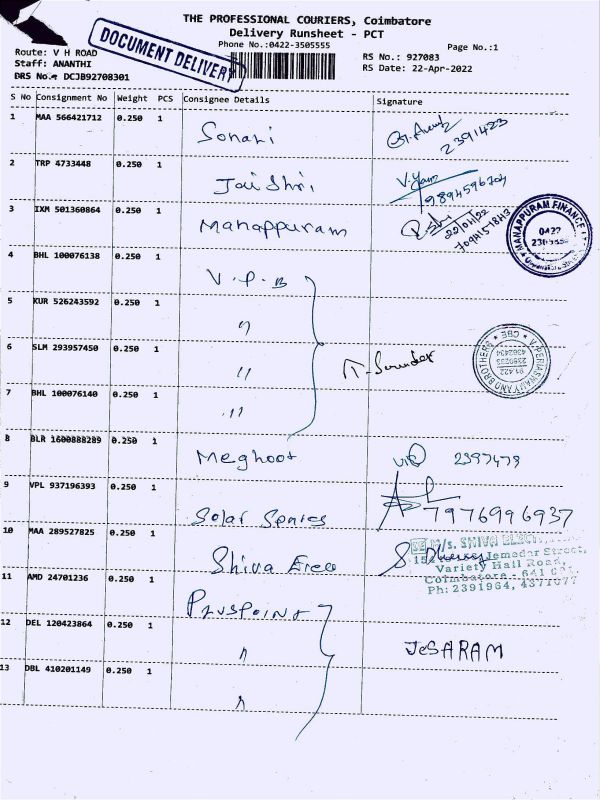 THE PROFESSIONAL COURIERS, Coimbatore
Delivery Runsheet - PCT
Phone No.:0422-3505555
Page No.:1
DOCUMENT DELIVERY
Route: V H ROAD
Staff: ANANTHI
DRS No.: DCJB92708301
RS No.: 927083
RS Date: 22-Apr-2022
S No Consignment No Weight PCS Consignee Details Signature
1 MAA 566421712 0.250 1 Sonari 2391423
2 TRP 4733448 0.250 1 Jai Shri
3 IXM 501360864 0.250 1 Manappuram 22/04/22
MANAPPURAM FINANCE
0422
4 BHL 100076138 0.250 1 V.P.B
5 KUR 526243592 0.250 1 "
6 SLM 293957450 0.250 1 "
V. PERIASWAMY AND BROTHERS
CBE
7 BHL 100076140 0.250 1 "
8 BLR 1600888289 0.250 1 Meghoot 2397479
9 VPL 937196393 0.250 1 Solar Sonics 7976996937
10 MAA 289527825 0.250 1 Shiva Elec
M/s. SHIVA
Jemedar Street,
Variety Hall Road,
Coimbatore - 641
Ph: 2391964, 4371077
11 AMD 24701236 0.250 1
12 DEL 120423864 0.250 1 " JeSARAM
13 DBL 410201149 0.250 1 "